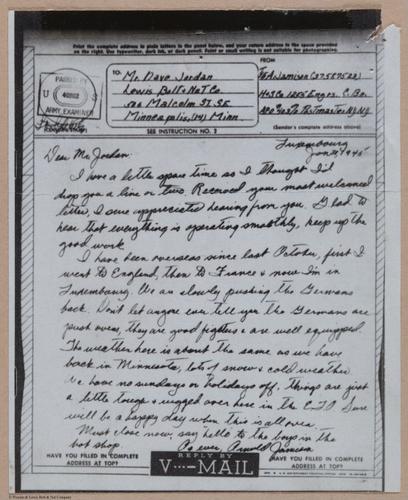 Print the complete address in plain letters in the panel below, and your return address in the space provided
on the right. Use typewriter, dark ink, or dark pencil. Faint or small writing is not suitable for photographing.
PASSED BY
U S
ARMY EXAMINER
(CENSOR'S STAMP)
TO:
Mr. Dave Jordan
Lewis Bolt & Nut Co
Malcolm St. SE
Minneapolis, (14) Minn
SEE INSTRUCTION NO. 2
FROM
A Jamison (37587522)
H+S Co 1255 Engrs. C. Bn.
(Sender's complete address above)
Luxembourg
Jan 1945
Dear Mr Jordan:
I have a little spare time so I thought I'd
drop you a line or two. Received your most welcomed
letter, I sure appreciated hearing from you. Glad to
hear that everything is operating smoothly, keep up the
good work.
I have been overseas since last October, first I
went to England, then to France & now I'm in
Luxembourg. We are slowly pushing the Germans
back. Don't let anyone ever tell you the Germans are
push overs, they are good fighters & are well equipped.
The weather here is about the same as we have
back in Minnesota, lots of snow & cold weather.
We have no sundays or holidays off. Things are just
a little tough & rugged over here in the E.T.O. Sure
will be a happy day when this is all over.
Must close now, say hello to the boys in the
bolt shop.
As ever Arnold Jamison
HAVE YOU FILLED IN COMPLETE
ADDRESS AT TOP?
REPLY BY
V···—MAIL
HAVE YOU FILLED IN COMPLETE
ADDRESS AT TOP?